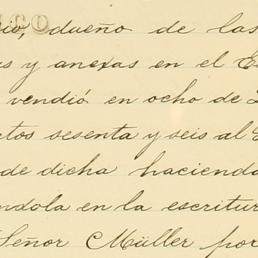 ICO
rio, dueño de las
as y anexas en el E
vendió en ocho de
tos sesenta y seis al
de dicha hacienda
ndola en la escritur
Señor Müller por